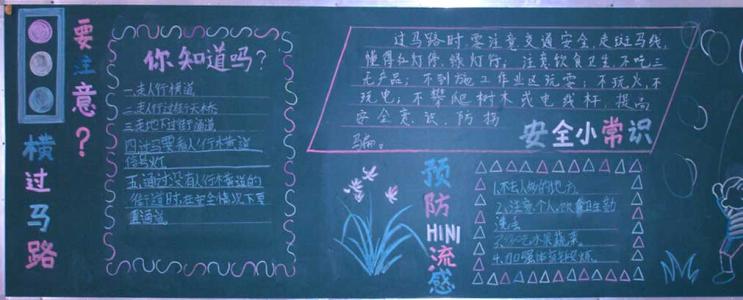 要注意？
横过马路
你知道吗？
一走人行横道
二走人行过街天桥
三走地下过街通道
四过马路要看人行横道
信号灯
五通过没有人行横道的
街道时,在安全情况下直
重通过
过马路时,要注意交通安全,走斑马线,
懂得红灯停、绿灯行；注意饮食卫生,不吃三
无产品；不到施工作业区玩耍；不玩火,不
玩电；不攀爬树木或电线杆,提高
安全意识,防拐
安全小常识
预防H1N1流感
1.不去人多的地方
2、注意个人,饮食卫生勤
洗手
水果蔬菜。
4.加强体育锻炼。